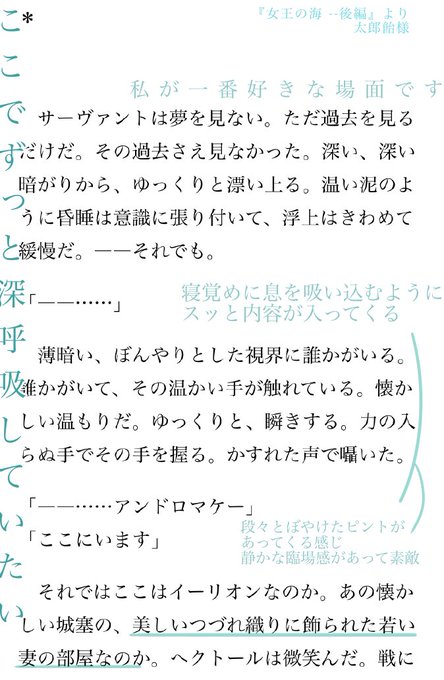 『女王の海 --後編』より
太郎飴様
私が一番好きな場面です
ここでずっと深呼吸していたい
*
サーヴァントは夢を見ない。ただ過去を見る
だけだ。その過去さえ見なかった。深い、深い
暗がりから、ゆっくりと漂い上る。温い泥のよ
うに昏睡は意識に張り付いて、浮上はきわめて
緩慢だ。——それでも。
「——……」
寝覚めに息を吸い込むように
スッと内容が入ってくる
薄暗い、ぼんやりとした視界に誰かがいる。
誰かがいて、その温かい手が触れている。懐か
しい温もりだ。ゆっくりと、瞬きする。力の入
らぬ手でその手を握る。かすれた声で囁いた。
「——……アンドロマケー」
「ここにいます」
段々とぼやけたピントが
あってくる感じ
静かな臨場感があって素敵
それではここはイーリオンなのか。あの懐か
しい城塞の、美しいつづれ織りに飾られた若い
妻の部屋なのか。ヘクトールは微笑んだ。戦に